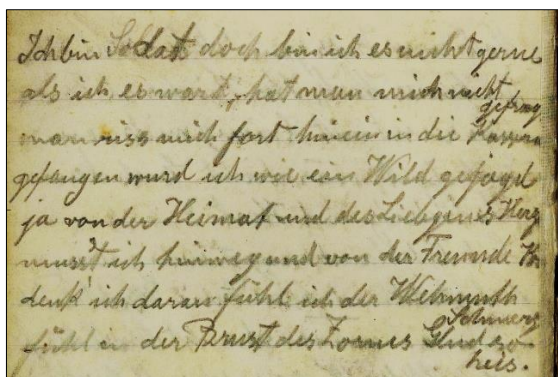 Ich bin Soldat doch bin ich es nicht gerne
als ich es ward, hat man mich nicht
gefrag
man riss mich fort hinein in die Kasern
gefangen wurd ich wie ein Wild gejagd
ja von der Heimat und des Liebgens Herz
musst ich hinweg und von der Freunde
denk ich daran fühl ich der Wehmuth
Schmerz
fühl in der Brust des Zornes Glud so
heis.